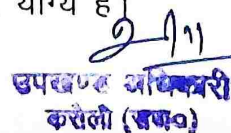 योग्य है।
उपखण्ड अधिकारी
करौली (राज०)